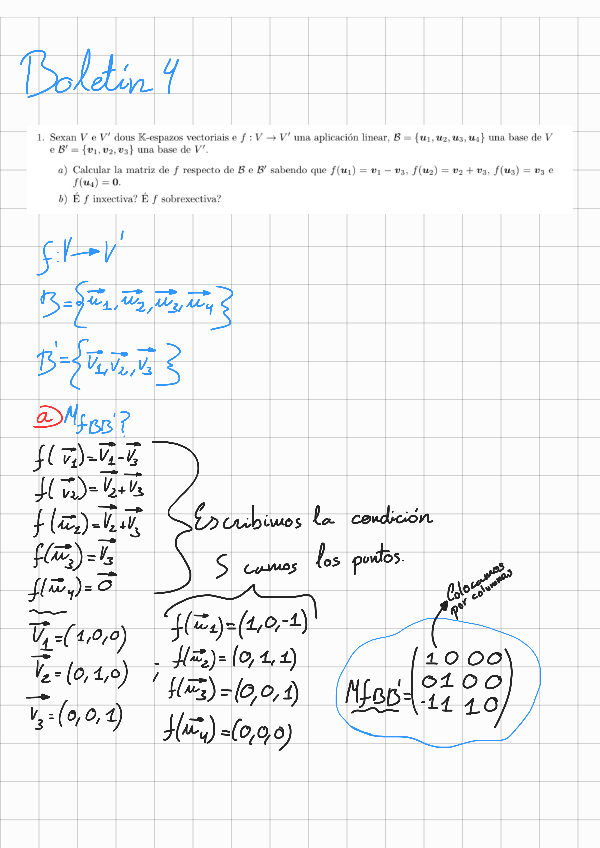 Boletín 4
1. Sexan V e V′ dous 𝕂-espazos vectoriais e f : V → V′ unha aplicación linear, ℬ = {u₁, u₂, u₃, u₄} una base de V
e ℬ′ = {v₁, v₂, v₃} una base de V′.
a) Calcular la matriz de f respecto de ℬ e ℬ′ sabendo que f(u₁) = v₁ − v₃, f(u₂) = v₂ + v₃, f(u₃) = v₃ e
f(u₄) = 0.
b) É f inxectiva? É f sobrexectiva?
f: V → V'
B = {u⃗₁, u⃗₂, u⃗₃, u⃗₄}
B' = {v⃗₁, v⃗₂, v⃗₃}
a) MfBB'?
f(v⃗₁) = v⃗₁ - v⃗₃
f(v⃗₂) = v⃗₂ + v⃗₃
f(u⃗₂) = v⃗₂ + v⃗₃
f(u⃗₃) = v⃗₃
f(u⃗₄) = 0⃗
Escribimos la condición
S camos los puntos.
v⃗₁ = (1,0,0)
v⃗₂ = (0,1,0) ;
v⃗₃ = (0,0,1)
f(u⃗₁) = (1,0,-1)
f(u⃗₂) = (0,1,1)
f(u⃗₃) = (0,0,1)
f(u⃗₄) = (0,0,0)
Colocamos
por columnas
1 0 0 0
MfBB' = 0 1 0 0
-1 1 1 0